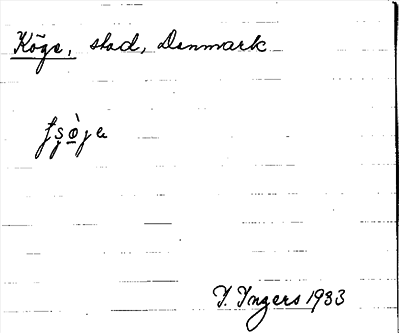 Köge, stad, Denmark
I. Ingers 1933